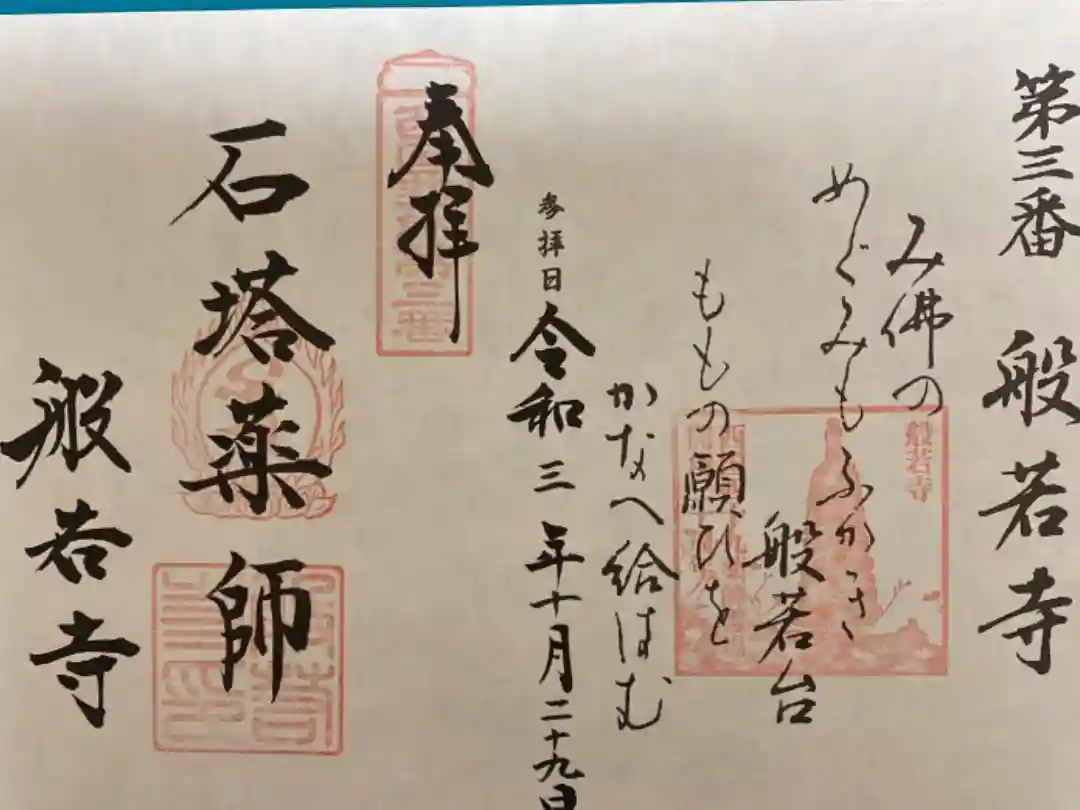 第三番 般若寺
み佛の
めぐみもふかき
般若台
もものの願ひを
かなへ給はむ
般若寺
参拝日 令和三年十月二十九日
奉拝
石塔薬師
般若寺